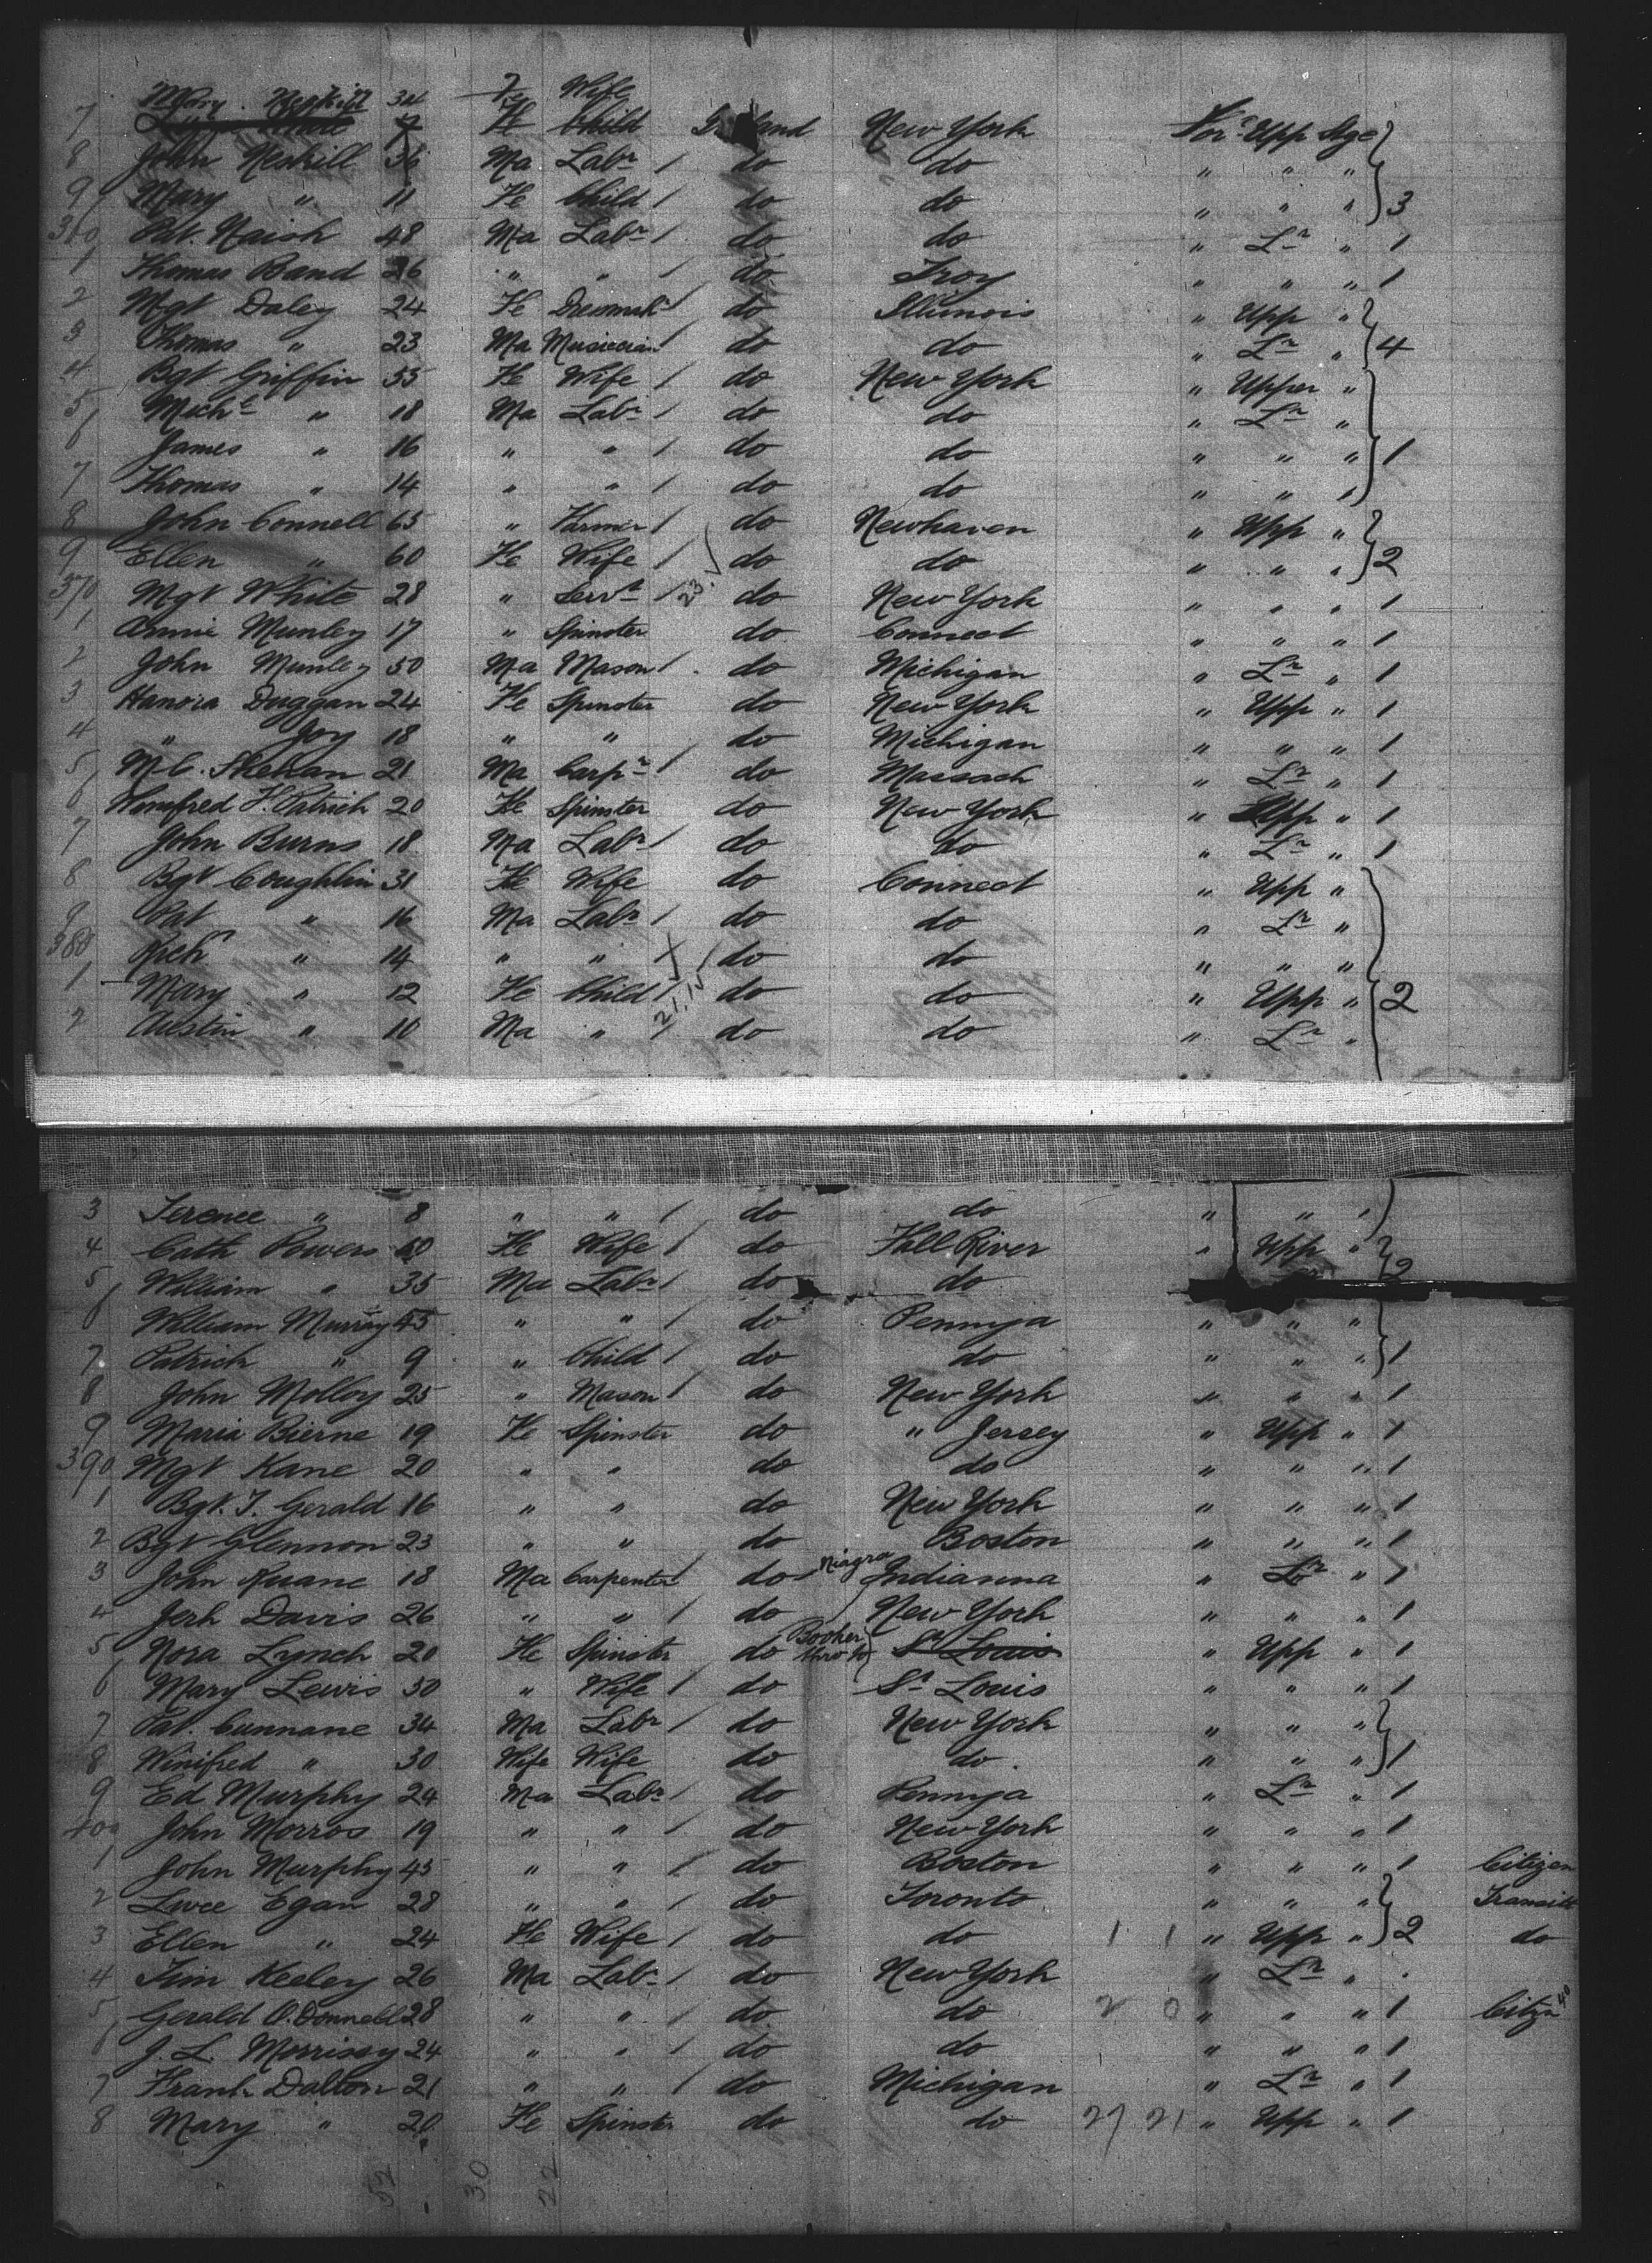 Mary Neshill 34 Fe Wife
7 Fe Child Ireland New York For'd Upp Stge
8 John Neshill 36 Ma Labr / do do " " "
9 Mary " 11 Fe Child / do do " " " 3
360 Pat. Naish 48 Ma Labr / do do " Lr " 1
1 Thomas Band 26 " " / do Troy " " " 1
2 Mgt Daley 24 Fe Dressmakr / do Illinois " Upp "
3 Thomas " 23 Ma Musician do do " Lr " 4
4 Bgt Griffin 55 Fe Wife / do New York " Upper "
5 Michl " 18 Ma Labr / do do " Lr "
6 James " 16 " " / do do " " " 1
7 Thomas " 14 " " / do do " " "
8 John Connell 65 " Farmer / do Newhaven " Upp "
9 Ellen " 60 Fe Wife / do do " " " 2
370 Mgt White 28 " Servt / 23 do New York " " " 1
1 Annie Munley 17 " Spinster do Connect " " " 1
2 John Munley 50 Ma Mason / do Michigan " Lr " 1
3 Hanora Duggan 24 Fe Spinster do New York " Upp " 1
4 " Joy 18 " " do Michigan " " " 1
5 M.C. Skehan 21 Ma Carpr / do Massach " Lr " 1
6 Winifred F. Patrick 20 Fe Spinster do New York " Upp " 1
7 John Burns 18 Ma Labr / do do " Lr " 1
8 Bgt Coughlin 31 Fe Wife do Connect " Upp "
9 Pat " 16 Ma Labr / do do " Lr "
380 Richd " 14 " " / do do " " "
1 Mary " 12 Fe Child / do do " Upp " 2
2 Austin " 10 Ma " / do do " Lr "
3 Terence " 8 " " / do do " " "
4 Cath Powers 60 Fe Wife / do Fall River " Upp "
5 William " 35 Ma Labr / do do 2
6 William Murray 45 " " / do Pennya " " "
7 Patrick " 9 " Child / do do " " " 1
8 John Molloy 25 " Mason / do New York " " " 1
9 Maria Bierne 19 Fe Spinster do " Jersey " Upp " 1
390 Mgt Kane 20 " " do do " " " 1
1 Bgt. F. Gerald 16 " " do New York " " " 1
2 Bgt Glennon 23 " " do Boston " " " 1
3 John Ruane 18 Ma Carpenter / do Niagra Indianna " Lr " 1
4 Jerh Davis 26 " " / do New York " " " 1
5 Nora Lynch 20 Fe Spinster do Booker thro to St Louis " Upp " 1
6 Mary Lewis 50 " Wife / do St Louis " " " 1
7 Pat. Cunnane 34 Ma Labr / do New York " " "
8 Winifred " 30 Wife Wife do do " " " 1
9 Ed Murphy 24 Ma Labr / do Pennya " Lr " 1
400 John Morros 19 " " / do New York " " " 1
1 John Murphy 45 " " / do Boston " " " 1 Citizen
2 Egan 28 " " / do Toronto " " " Transitt
3 Ellen " 24 Fe Wife / do do 1 1 " Upp " 2 do
4 Jim Keeley 26 Ma Labr / do New York " Lr "
5 Gerald O. Donnell 28 " " / do do 2 0 " " " 1 Citzn
6 J. L. Morrissy 24 " " / do do " " " 1
7 Frank Dalton 21 " " / do Michigan " Lr " 1
8 Mary " 20 Fe Spinster do do 27 21 " Upp " 1
52 30 22